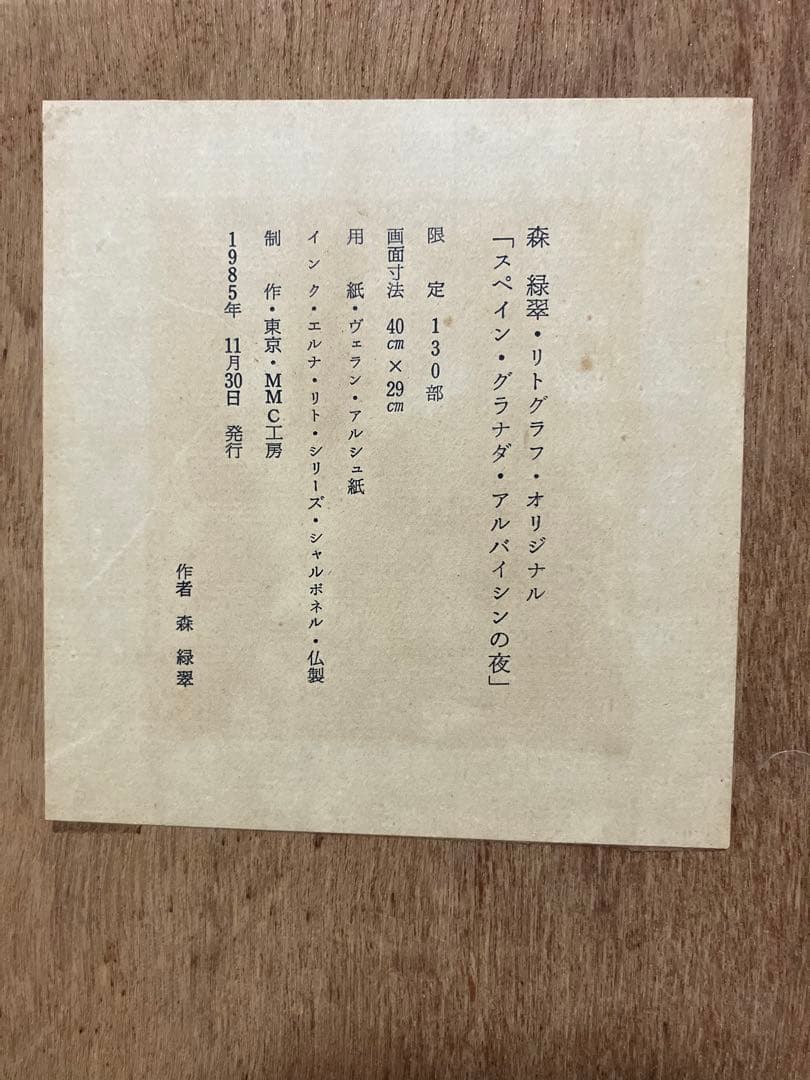 森 緑翠・リトグラフ・オリジナル
「スペイン・グラナダ・アルバイシンの夜」
限 定 130部
画面寸法 40㎝×29㎝
用 紙・ヴェラン・アルシュ紙
インク・エルナ・リト・シリーズ・シャルボネル・仏製
制 作・東京・MMC工房
1985年 11月30日 発行
作者 森 緑翠